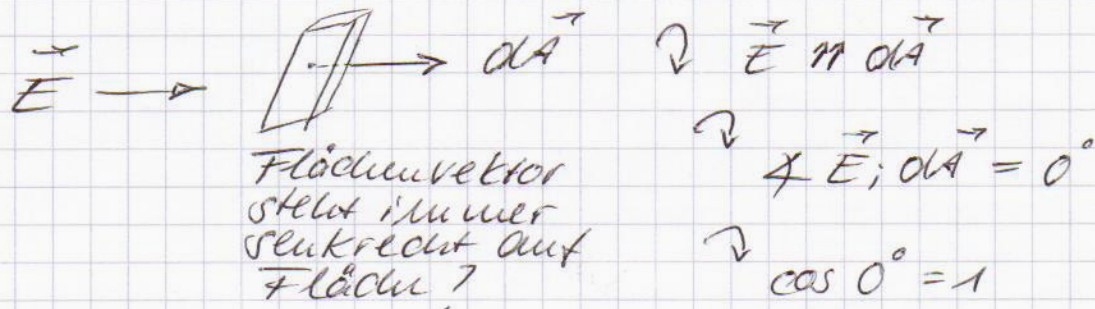 E⃗ → → dA⃗ ↷ E⃗ ⇈ dA⃗
↷ ∡ E⃗; dA⃗ = 0°
Flächenvektor
steht immer
senkrecht auf
Fläche!
↷ cos 0° = 1